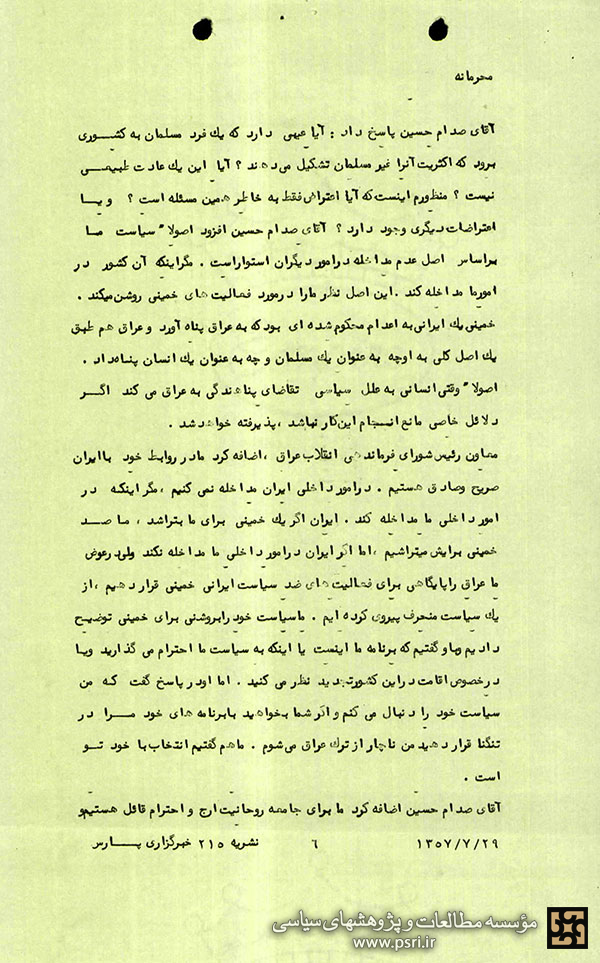 محرمانه
آقای صدام حسین پاسخ داد : آیا عیبی دارد که یك فرد مسلمان به کشوری
برود که اکثریت آنرا غیر مسلمان تشکیل می دهند ؟ آیا این یك عادت طبیعی
نیست ؟ منظورم اینست که آیا اعتراض فقط به خاطر همین مسئله است ؟ و یا
اعتراضات دیگری وجود دارد ؟ آقای صدام حسین افزود اصولا" سیاست ما
براساس اصل عدم مداخله درامور دیگران استواراست . مگراینکه آن کشور در
امورما مداخله کند . این اصل نظر مارا درمورد فعالیت های خمینی روشن میکند .
خمینی یك ایرانی به اعدام محکوم شده ای بود که به عراق پناه آورد و عراق هم طبق
یك اصل کلی به اوچه به عنوان یك مسلمان و چه به عنوان یك انسان پناه داد .
اصولا" وقتی انسانی به علل سیاسی تقاضای پناهندگی به عراق می کند اگر
دلائل خاصی مانع انجام این کار نباشد ، پذیرفته خواهد شد .
معاون رئیس شورای فرماندهی انقلاب عراق ، اضافه کرد مادر روابط خود باایران
صریح وصادق هستیم . درامور داخلی ایران مداخله نمی کنیم ، مگر اینکه در
امور داخلی ما مداخله کند . ایران اگر یك خمینی برای ما بتراشد ، ما صد
خمینی برایش میتراشیم ، اما اگر ایران درامور داخلی ما مداخله نکند ولی درعوض
ما عراق راپایگاهی برای فعالیت های ضد سیاست ایرانی خمینی قرار دهیم ، از
یك سیاست منحرف پیروی کرده ایم . ماسیاست خود رابروشنی برای خمینی توضیح
دادیم وباو گفتیم که برنامه ما اینست یا اینکه به سیاست ما احترام می گذارید ویا
درخصوص اقامت دراین کشورتجدید نظر می کنید . اما اودر پاسخ گفت که من
سیاست خود را دنبال می کنم و اگر شما بخواهید بابرنامه های خود مرا در
تنگنا قرار دهید من ناچار از ترك عراق می شوم . ماهم گفتیم انتخاب با خود تو
است .
آقای صدام حسین اضافه کرد ما برای جامعه روحانیت ارج و احترام قائل هستیم و
۱۳۵۷/۷/۲۹ ۶ نشریه ۲۱۵ خبرگزاری پارس
مؤسسه مطالعات و پژوهشهای سیاسی
www.psri.ir